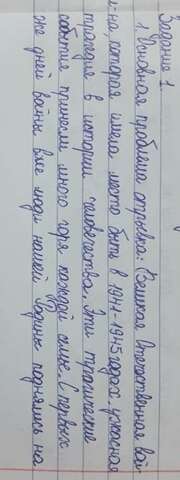 Задание 1
1. Основная проблема отрывка: Великая Отечественная вой-
на, которая имела место быть в 1941-1945 годах. ужасная
трагедия в истории человечества. Эти трагические
события принесли много горя каждой семье. С первых
же дней войны все люди нашей Родины поднялись на